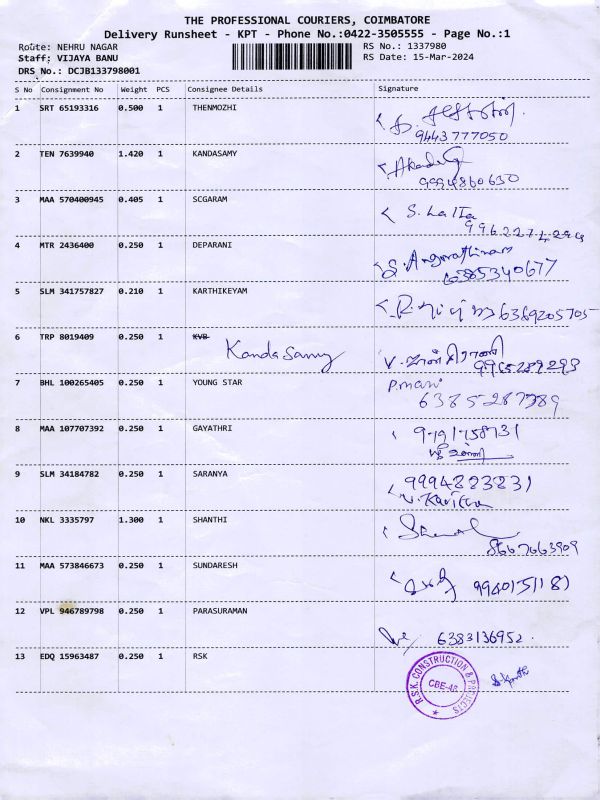 THE PROFESSIONAL COURIERS, COIMBATORE
Delivery Runsheet - KPT - Phone No.:0422-3505555 - Page No.:1
Route: NEHRU NAGAR RS No.: 1337980
Staff: VIJAYA BANU RS Date: 15-Mar-2024
DRS No.: DCJB133798001
S No Consignment No Weight PCS Consignee Details Signature
1 SRT 65193316 0.500 1 THENMOZHI
9443777050
2 TEN 7639940 1.420 1 KANDASAMY
9994860630
3 MAA 570400945 0.405 1 SCGARAM
S. Lalita
4 MTR 2436400 0.250 1 DEPARANI
6385340677
5 SLM 341757827 0.210 1 KARTHIKEYAM
6369205705
6 TRP 8019409 0.250 1 KVB
Kanda Samy
9965289293
7 BHL 100265405 0.250 1 YOUNG STAR
P.mani
8 MAA 107707392 0.250 1 GAYATHRI
9 SLM 34184782 0.250 1 SARANYA
9994823831
V. Kavitha
10 NKL 3335797 1.300 1 SHANTHI
8667663909
11 MAA 573846673 0.250 1 SUNDARESH
9940151181
12 VPL 946789798 0.250 1 PARASURAMAN
6383136952.
13 EDQ 15963487 0.250 1 RSK
R.S.K. CONSTRUCTION & PROJECTS
CBE-48